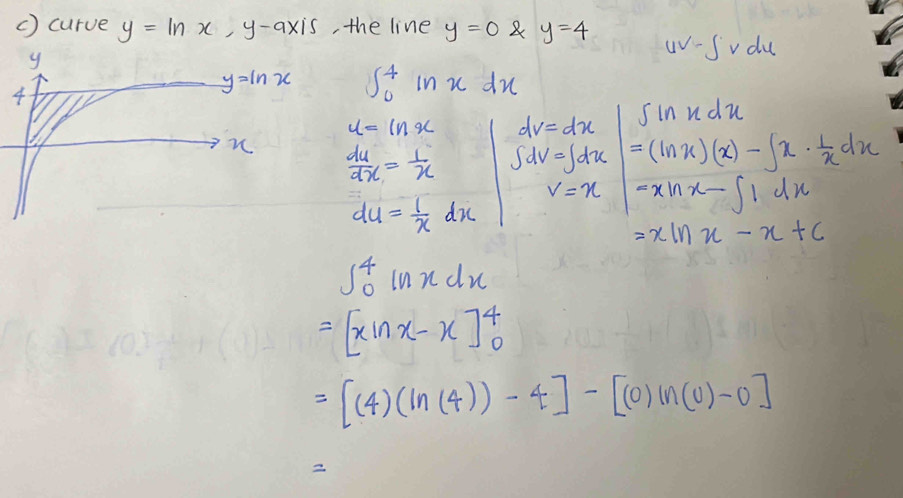 c) curve y = ln x, y-axis, the line y = 0 & y = 4
uv - ∫ v du
y
4
y = ln x
x
∫₀⁴ ln x dx
u = ln x
du/dx = 1/x
du = 1/x dx
dv = dx
∫ dv = ∫ dx
v = x
∫ ln x dx
= (ln x)(x) - ∫ x · 1/x dx
= x ln x - ∫ 1 dx
= x ln x - x + c
∫₀⁴ ln x dx
= [x ln x - x]₀⁴
= [(4)(ln (4)) - 4] - [(0) ln(0) - 0]
=